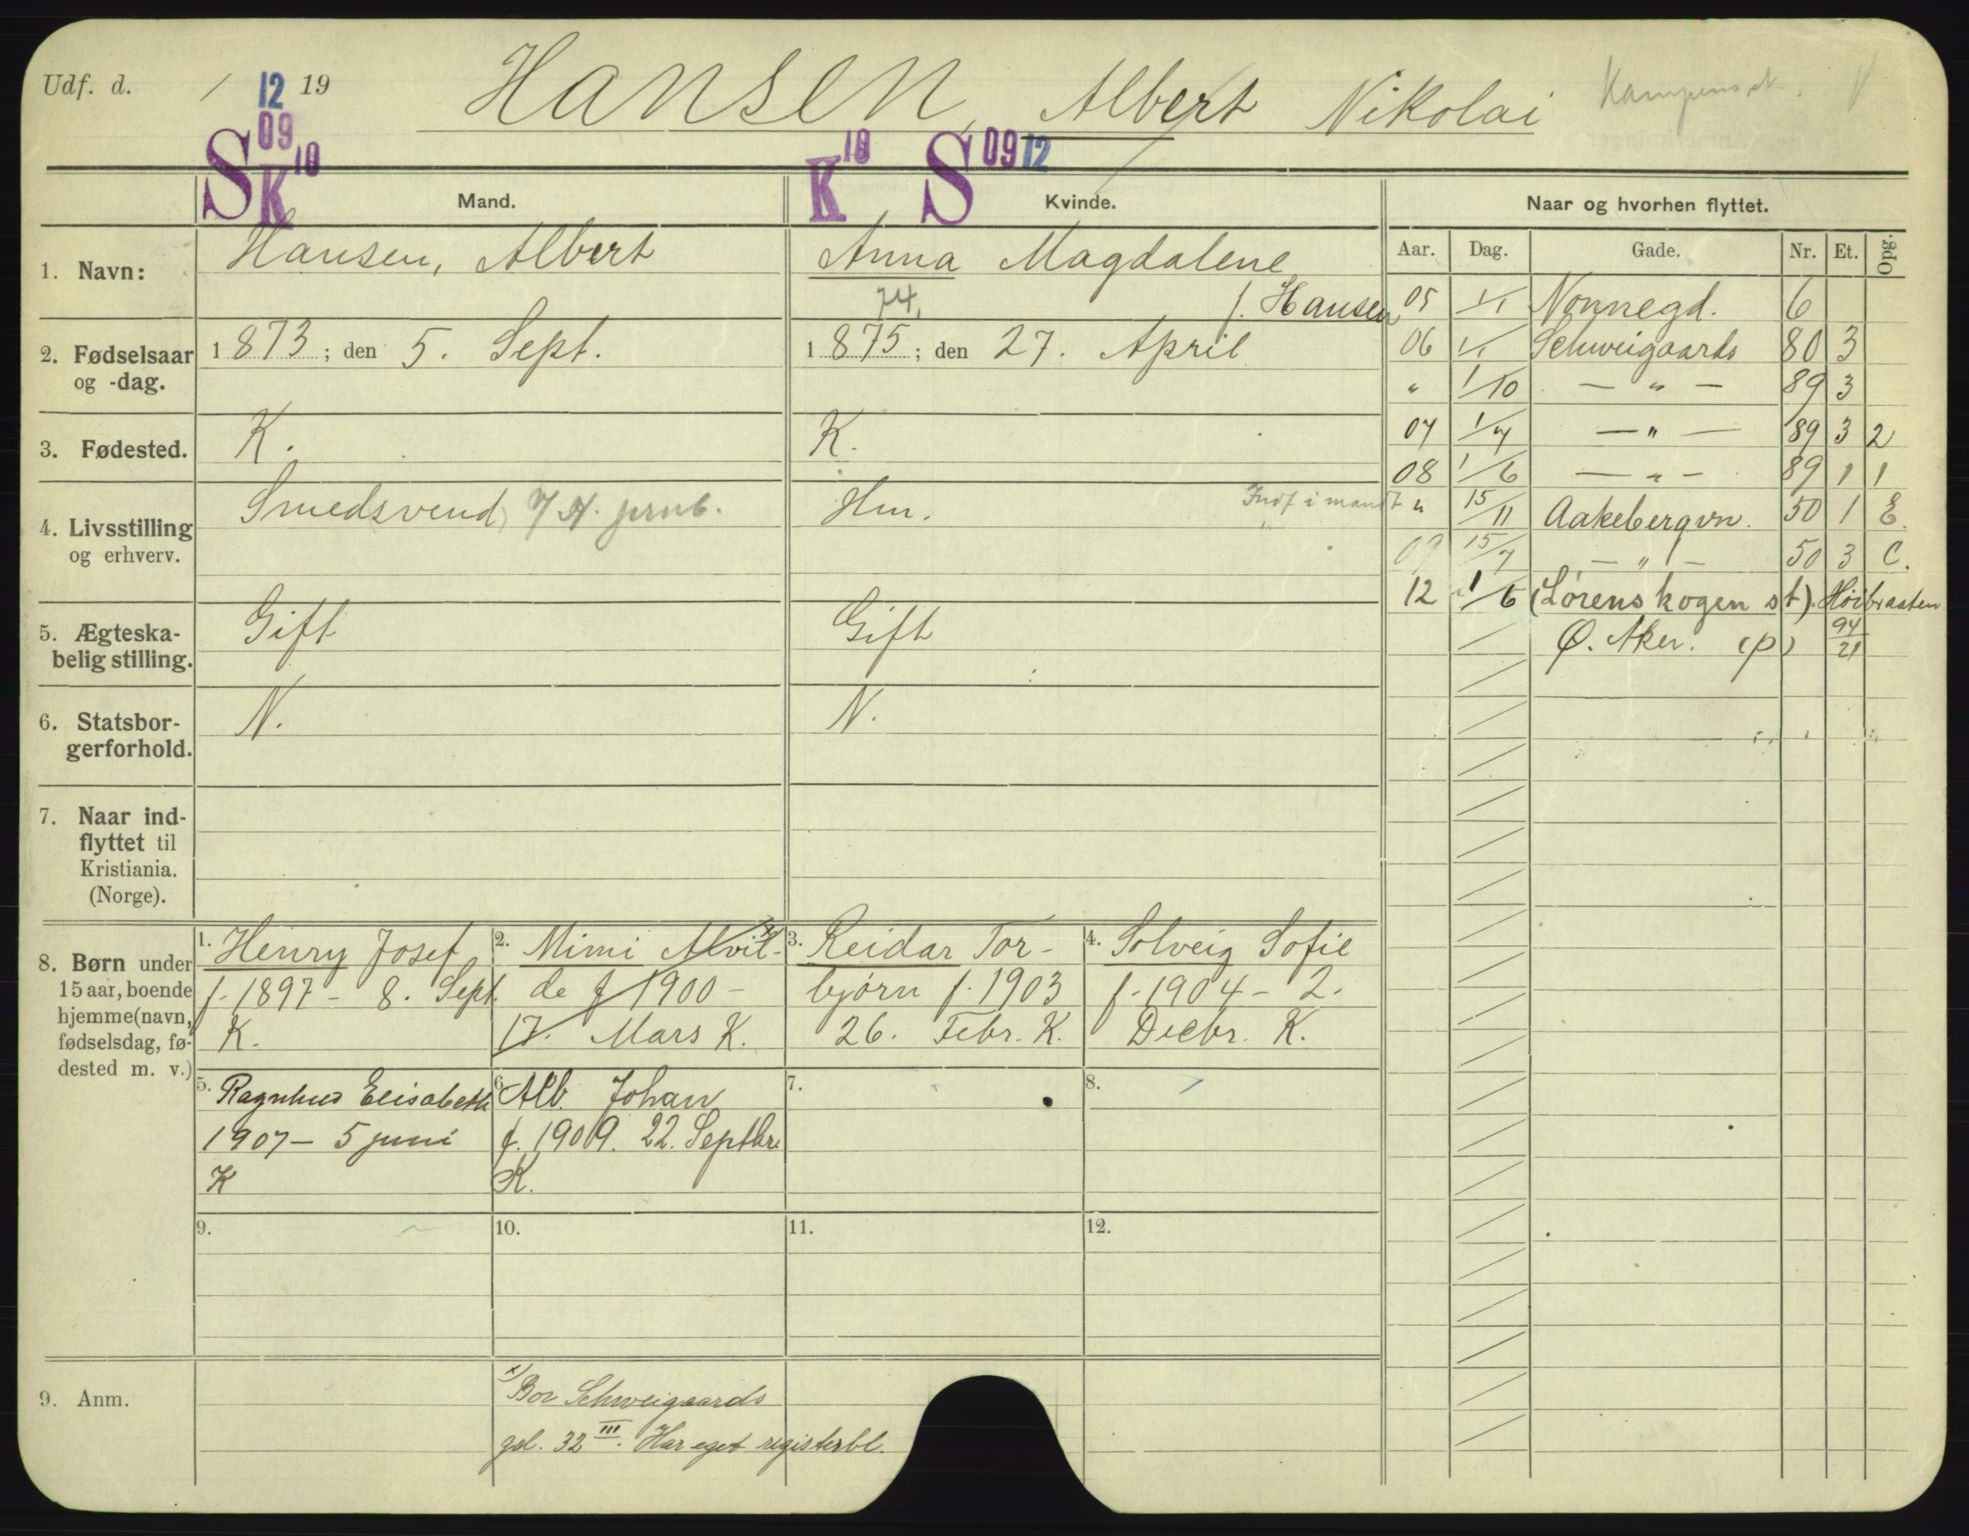 Udf. d. / 12 19
Hansen, Albert Nikolai
S 09 K 10
K 10 S 09 12
Mand. Kvinde. Naar og hvorhen flyttet.
Aar. Dag. Gade. Nr. Et. Opg.
1. Navn:
Hansen, Albert
Anna Magdalene
f. Hansen
2. Fødselsaar
og -dag.
1873; den 5. Sept.
74,
1875; den 27. April
3. Fødested.
K.
K.
4. Livsstilling
og erhverv.
Smedsvend
Hm.
5. Ægteska-
belig stilling.
Gift
Gift
6. Statsbor-
gerforhold.
N.
N.
7. Naar ind-
flyttet til
Kristiania.
(Norge).
05 1/1 Nonnegd. 6
06 1/1 Schweigaards 80 3
" 1/10 — " — 89 3
07 1/7 — " — 89 3 2
08 1/6 — " — 89 1 1
Indf i mandt
" 15/11 Aakebergvn. 50 1 E.
09 15/7 — " — 50 3 C.
12 1/6 (Lørenskogen st). Høibraaten
Ø. Aker. (p) 94/21
8. Børn under
15 aar, boende
hjemme (navn,
fødselsdag, fø-
dested m. v.)
1. Henry Josef
f. 1897 - 8. Sept.
K.
2. Mimi Alvil-
de f 1900 -
17. Mars K.
3. Reidar Tor-
bjørn f. 1903
26. Febr. K.
4. Solveig Sofie
f. 1904 - 2.
Decbr. K.
5. Ragnhild Elisabeth
1907 - 5 juni
K
6. Alb. Johan
f. 1909. 22. Septbr.
K.
7.
8.
9.
10.
11.
12.
9. Anm.
x) Bor Schweigaards
gd. 32 III. Har eget registerbl.